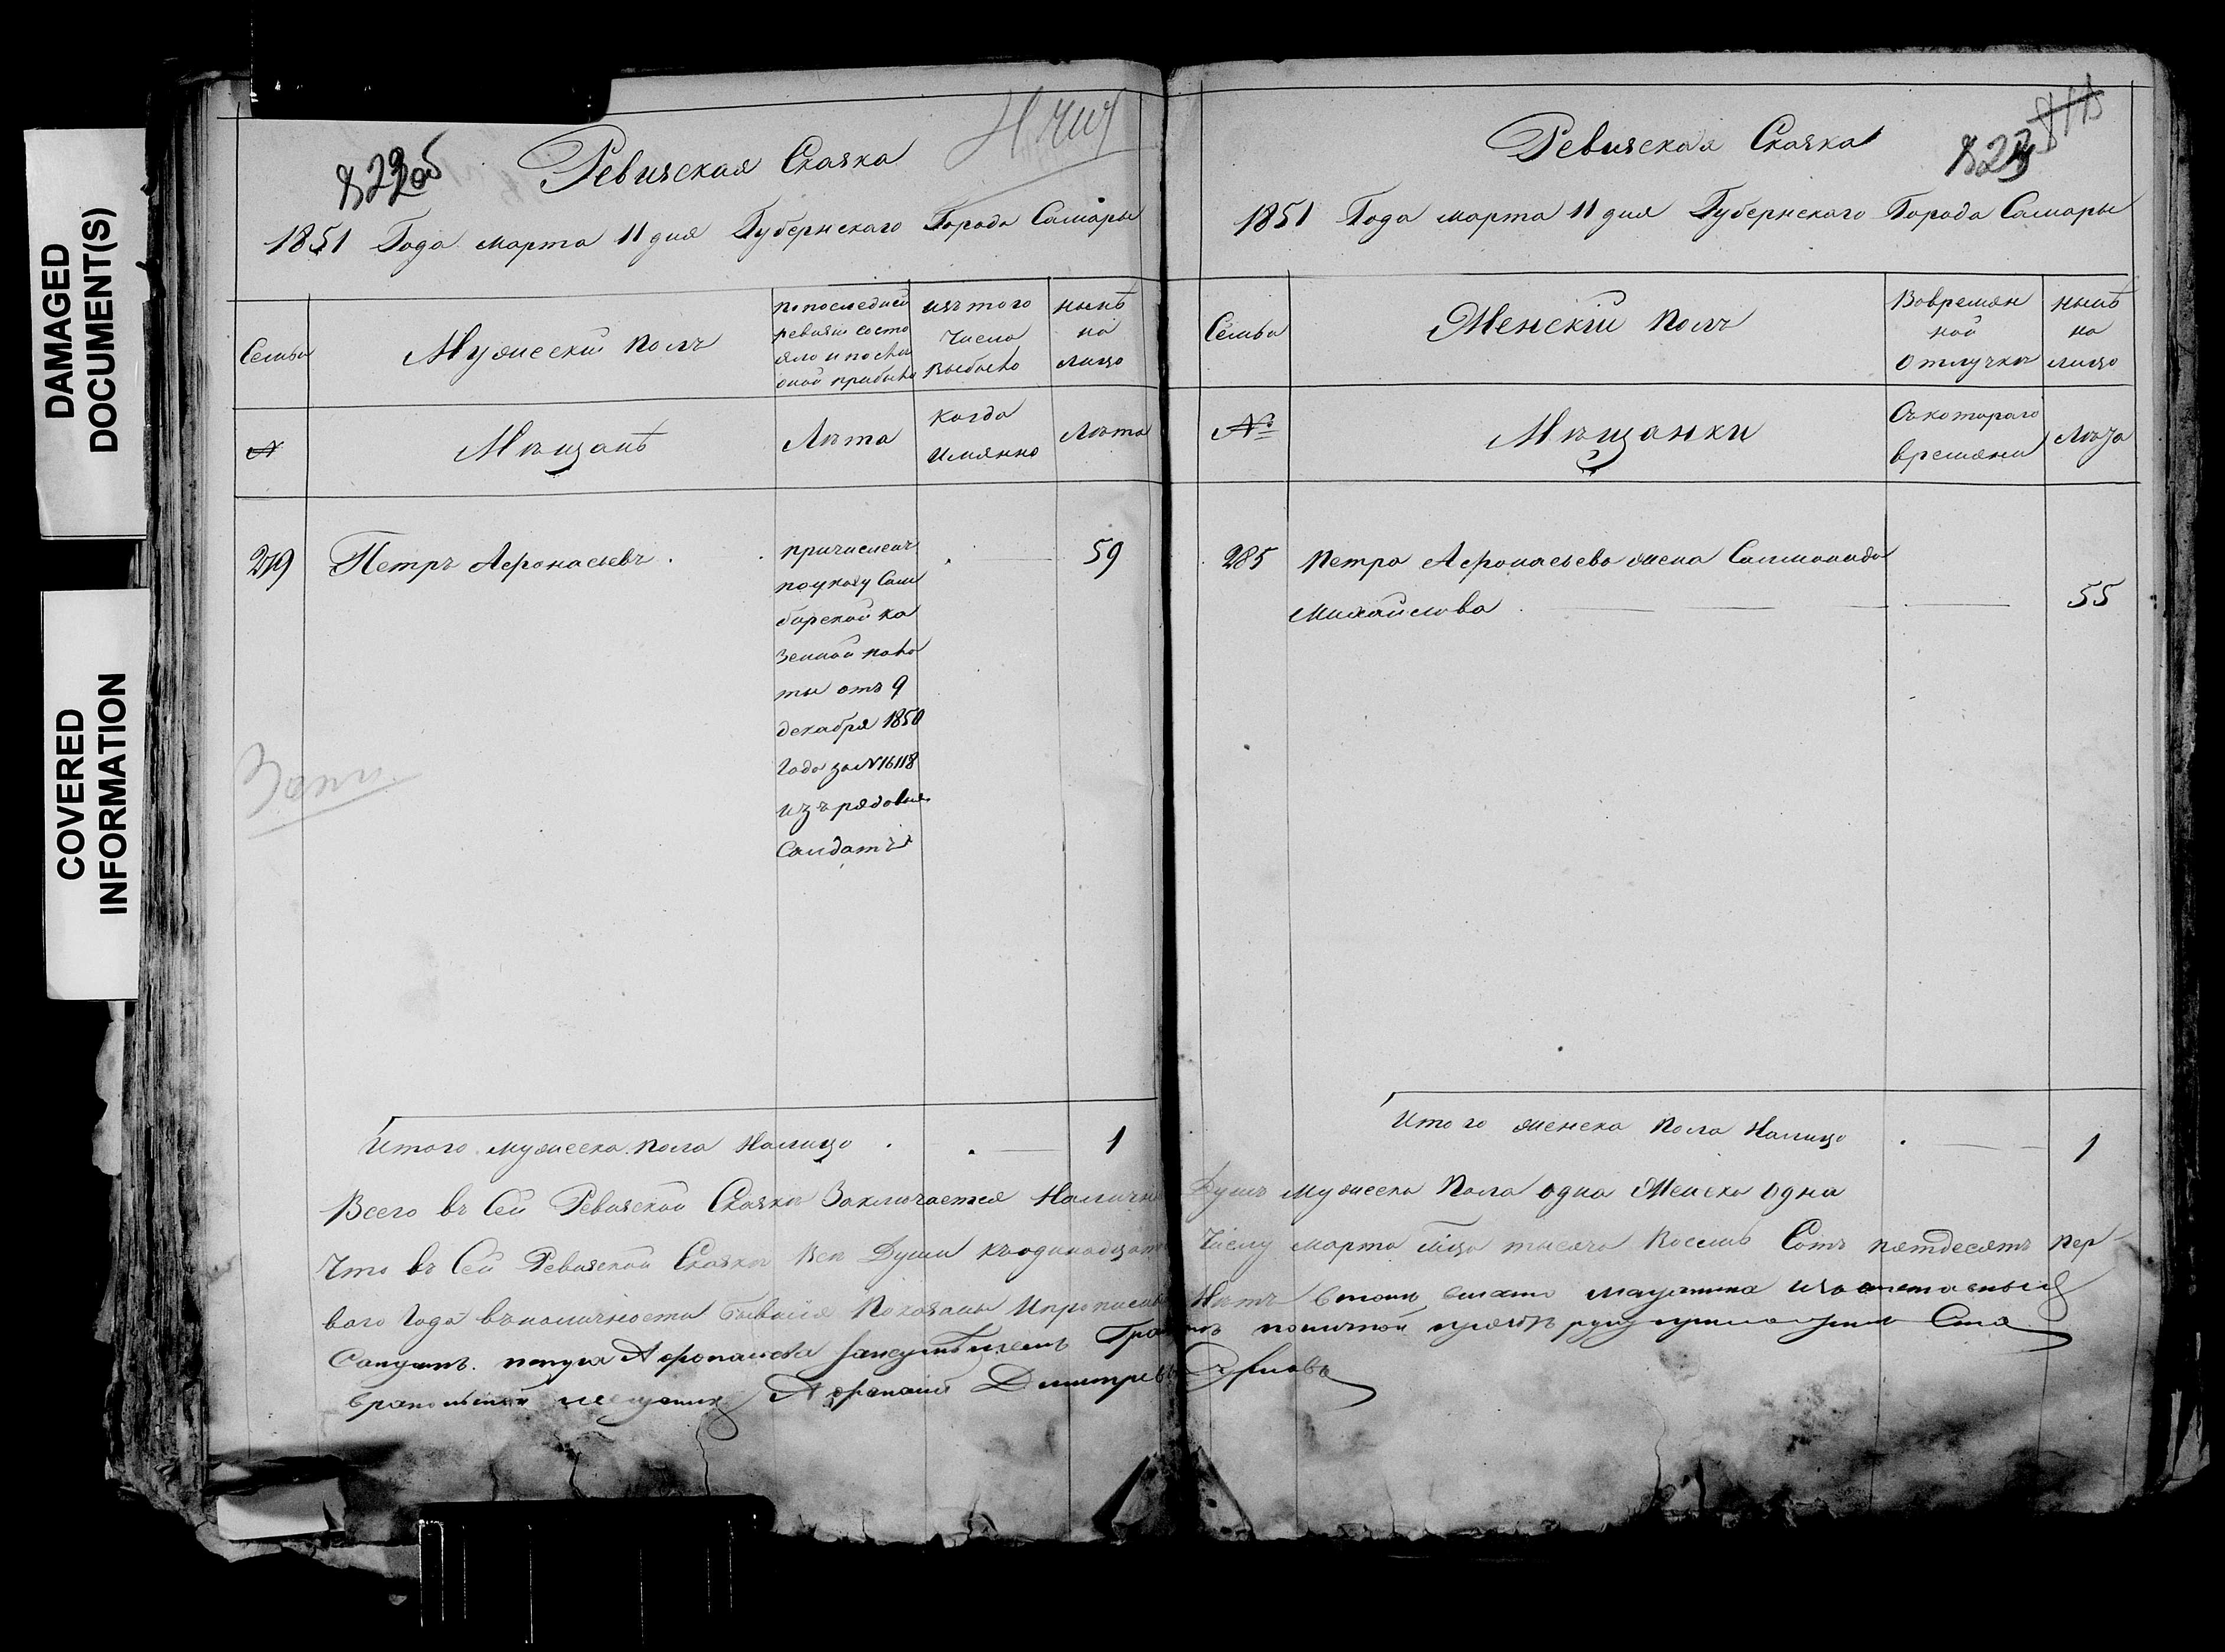 DAMAGED
DOCUMENT(S)
COVERED
INFORMATION
822об
Ревизская Сказка
1851 Года марта 11 дня Губернскаго Города Самары
Семьи
Мужеский полъ
по последней
ревизіи состо
яло и после
оной прибыло
изъ того
Числа
выбыло
ныне
на
лицо
№
Мещане
Лета
когда
Имянно
Лета
Петръ Афонасьевъ
причисленъ
по указу Сим
бирской ка
зенной пала
ты отъ 9
декабря 1850
Года за №16118
изъ рядовыхъ
Салдатъ
59
Итого мужеска пола Налицо 1
Ревизская Сказка
823
1851 Года марта 11 дня Губернскаго Города Самары
Семьи
Женскій полъ
Вовремян
ной
отлучке
ныне
на
лицо
№
Мещанки
Съкотораго
времяни
Лета
285 Петра Афонасьева жена Саломанида
Михайлова 55
Итого женска пола Налицо 1
Всего въ Сей Ревизской Сказке Заключается Наличн Душъ мужеска пола одна Женска одна
Что въ Сей Ревизской Сказке все Души къодинадцато Числу марта м̃ца тысяча Восемь Сотъ пятдесятъ пер
ваго Года въналичности бывшія Показаны
Афонасьева
мещанинъ Афанасий Дмитревъ